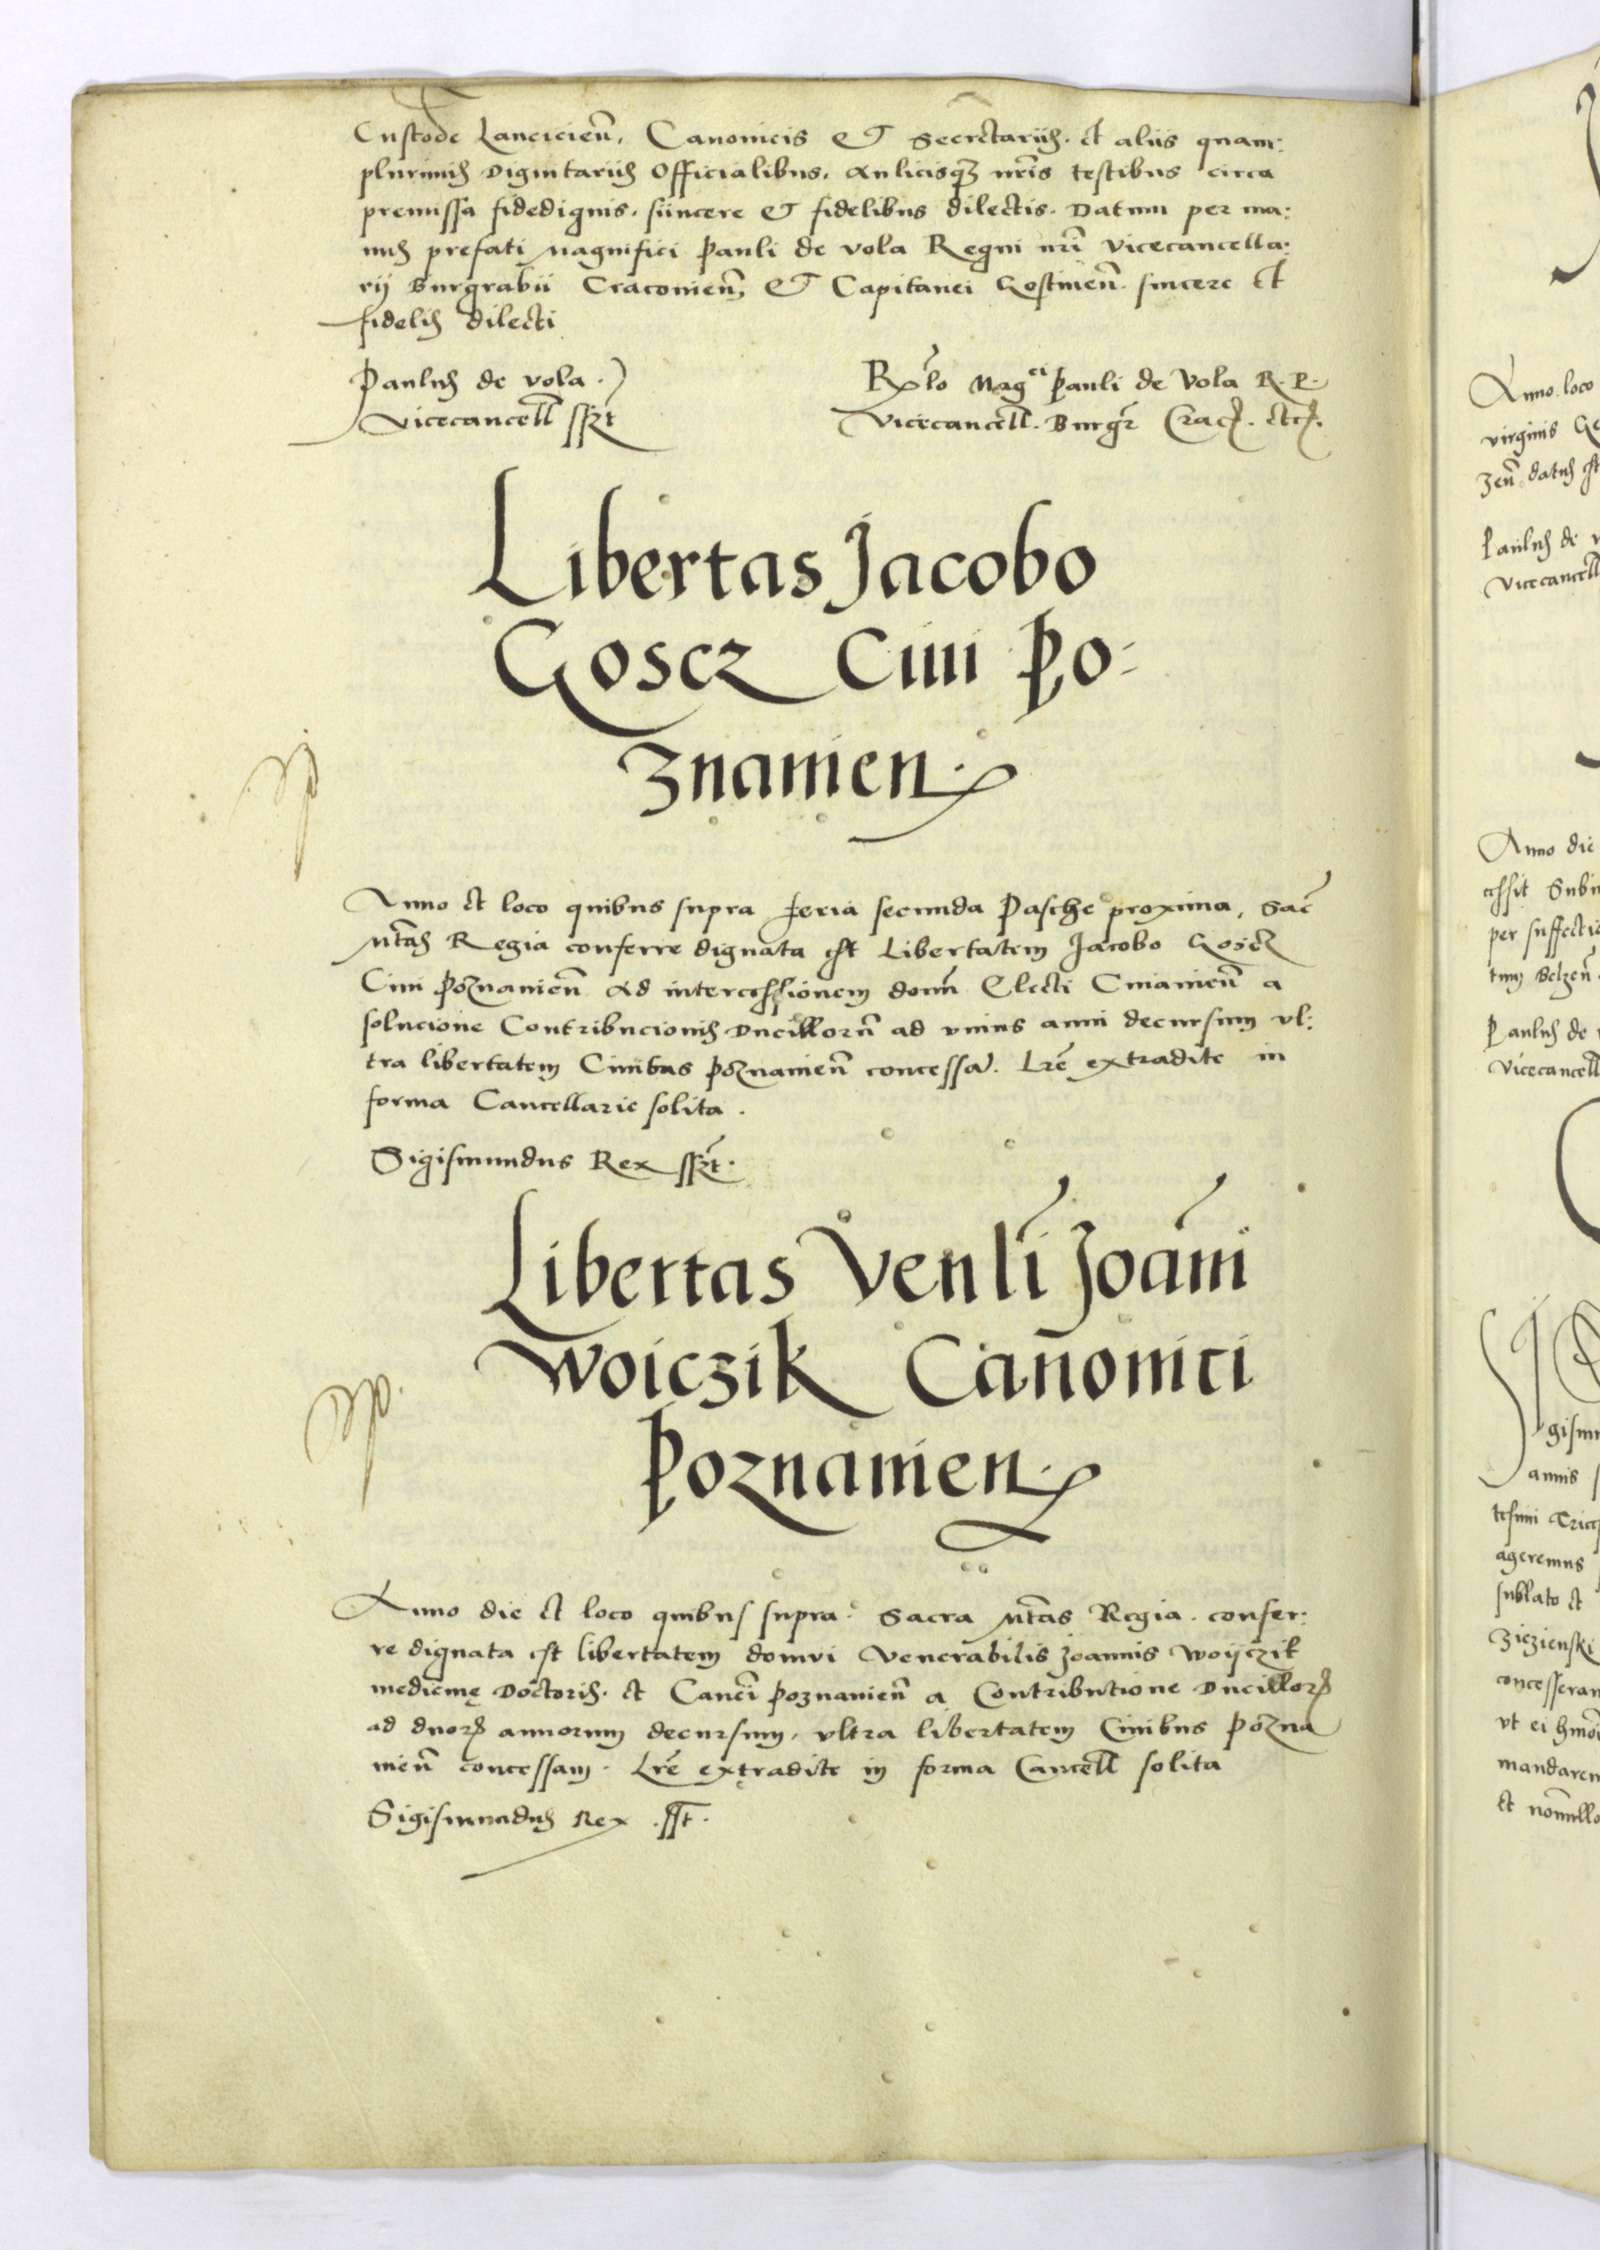 Custode Lancicien̄, Canonicis & Secretariis. et aliis quam:
plurimis Dignitariis Officialibus, Aulicisq nr̄is testibus circa
premissa fidedignis, siincere & fidelibus dilectis. Datum per ma:
nus prefati Magnifici Pauli de vola Regni nr̄i Vicecancella:
rij Burgrabii Cracouien̄, & Capitanei Gostinen̄. sincere et
fidelis dilecti
Paulus de vola.
Vicecancell sszt
Rlo Mag^ci Pauli de Vola R. P.
Vicecancell. Burgr Crac. etc.
Libertas Jacobo
Goscz Ciui Po:
znanien.
Anno et loco quibus supra feria secunda Pasche proxima, Sac̄
Mtas Regia conferre dignata est Libertatem Jacobo Goscz
Ciui Poznanien̄ Ad intercessionem domn̄ Electi Cuiauien̄ a
solucione Contribucionis Ducillorū ad vnius anni decursum vl:
tra libertatem Ciuibus Poznanien̄ concessā. Lr̄e extradite in
forma Cancellarie solita.
Sigismundus Rex sszt.
Libertas Venlī Joān̄i
Woiczik Canonici
Poznanien.
Anno die et loco quibus supra. Sacra Mtas Regia. confer:
re dignata est libertatem domui Venerabilis Joannis Woijczik
medicinę Doctoris. et Canci Poznanien̄ a Contributione Ducillor
ad duor annorum decursum, vltra libertatem Ciuibus Pozna
nien̄ concessam. Lr̄e extradite in forma Cancell solita
Sigismundus Rex sst.
Anno. loco
virginis
zen̄. datus est
Paulus de
Vicecancell
Anno die
cessit
per suffectio
tum Belzen̄
Paulus de
Vicecancell
gism
annis
tesimi
ageremus
sublato et
concesseram
vt ei
mandarem
et nonnullo